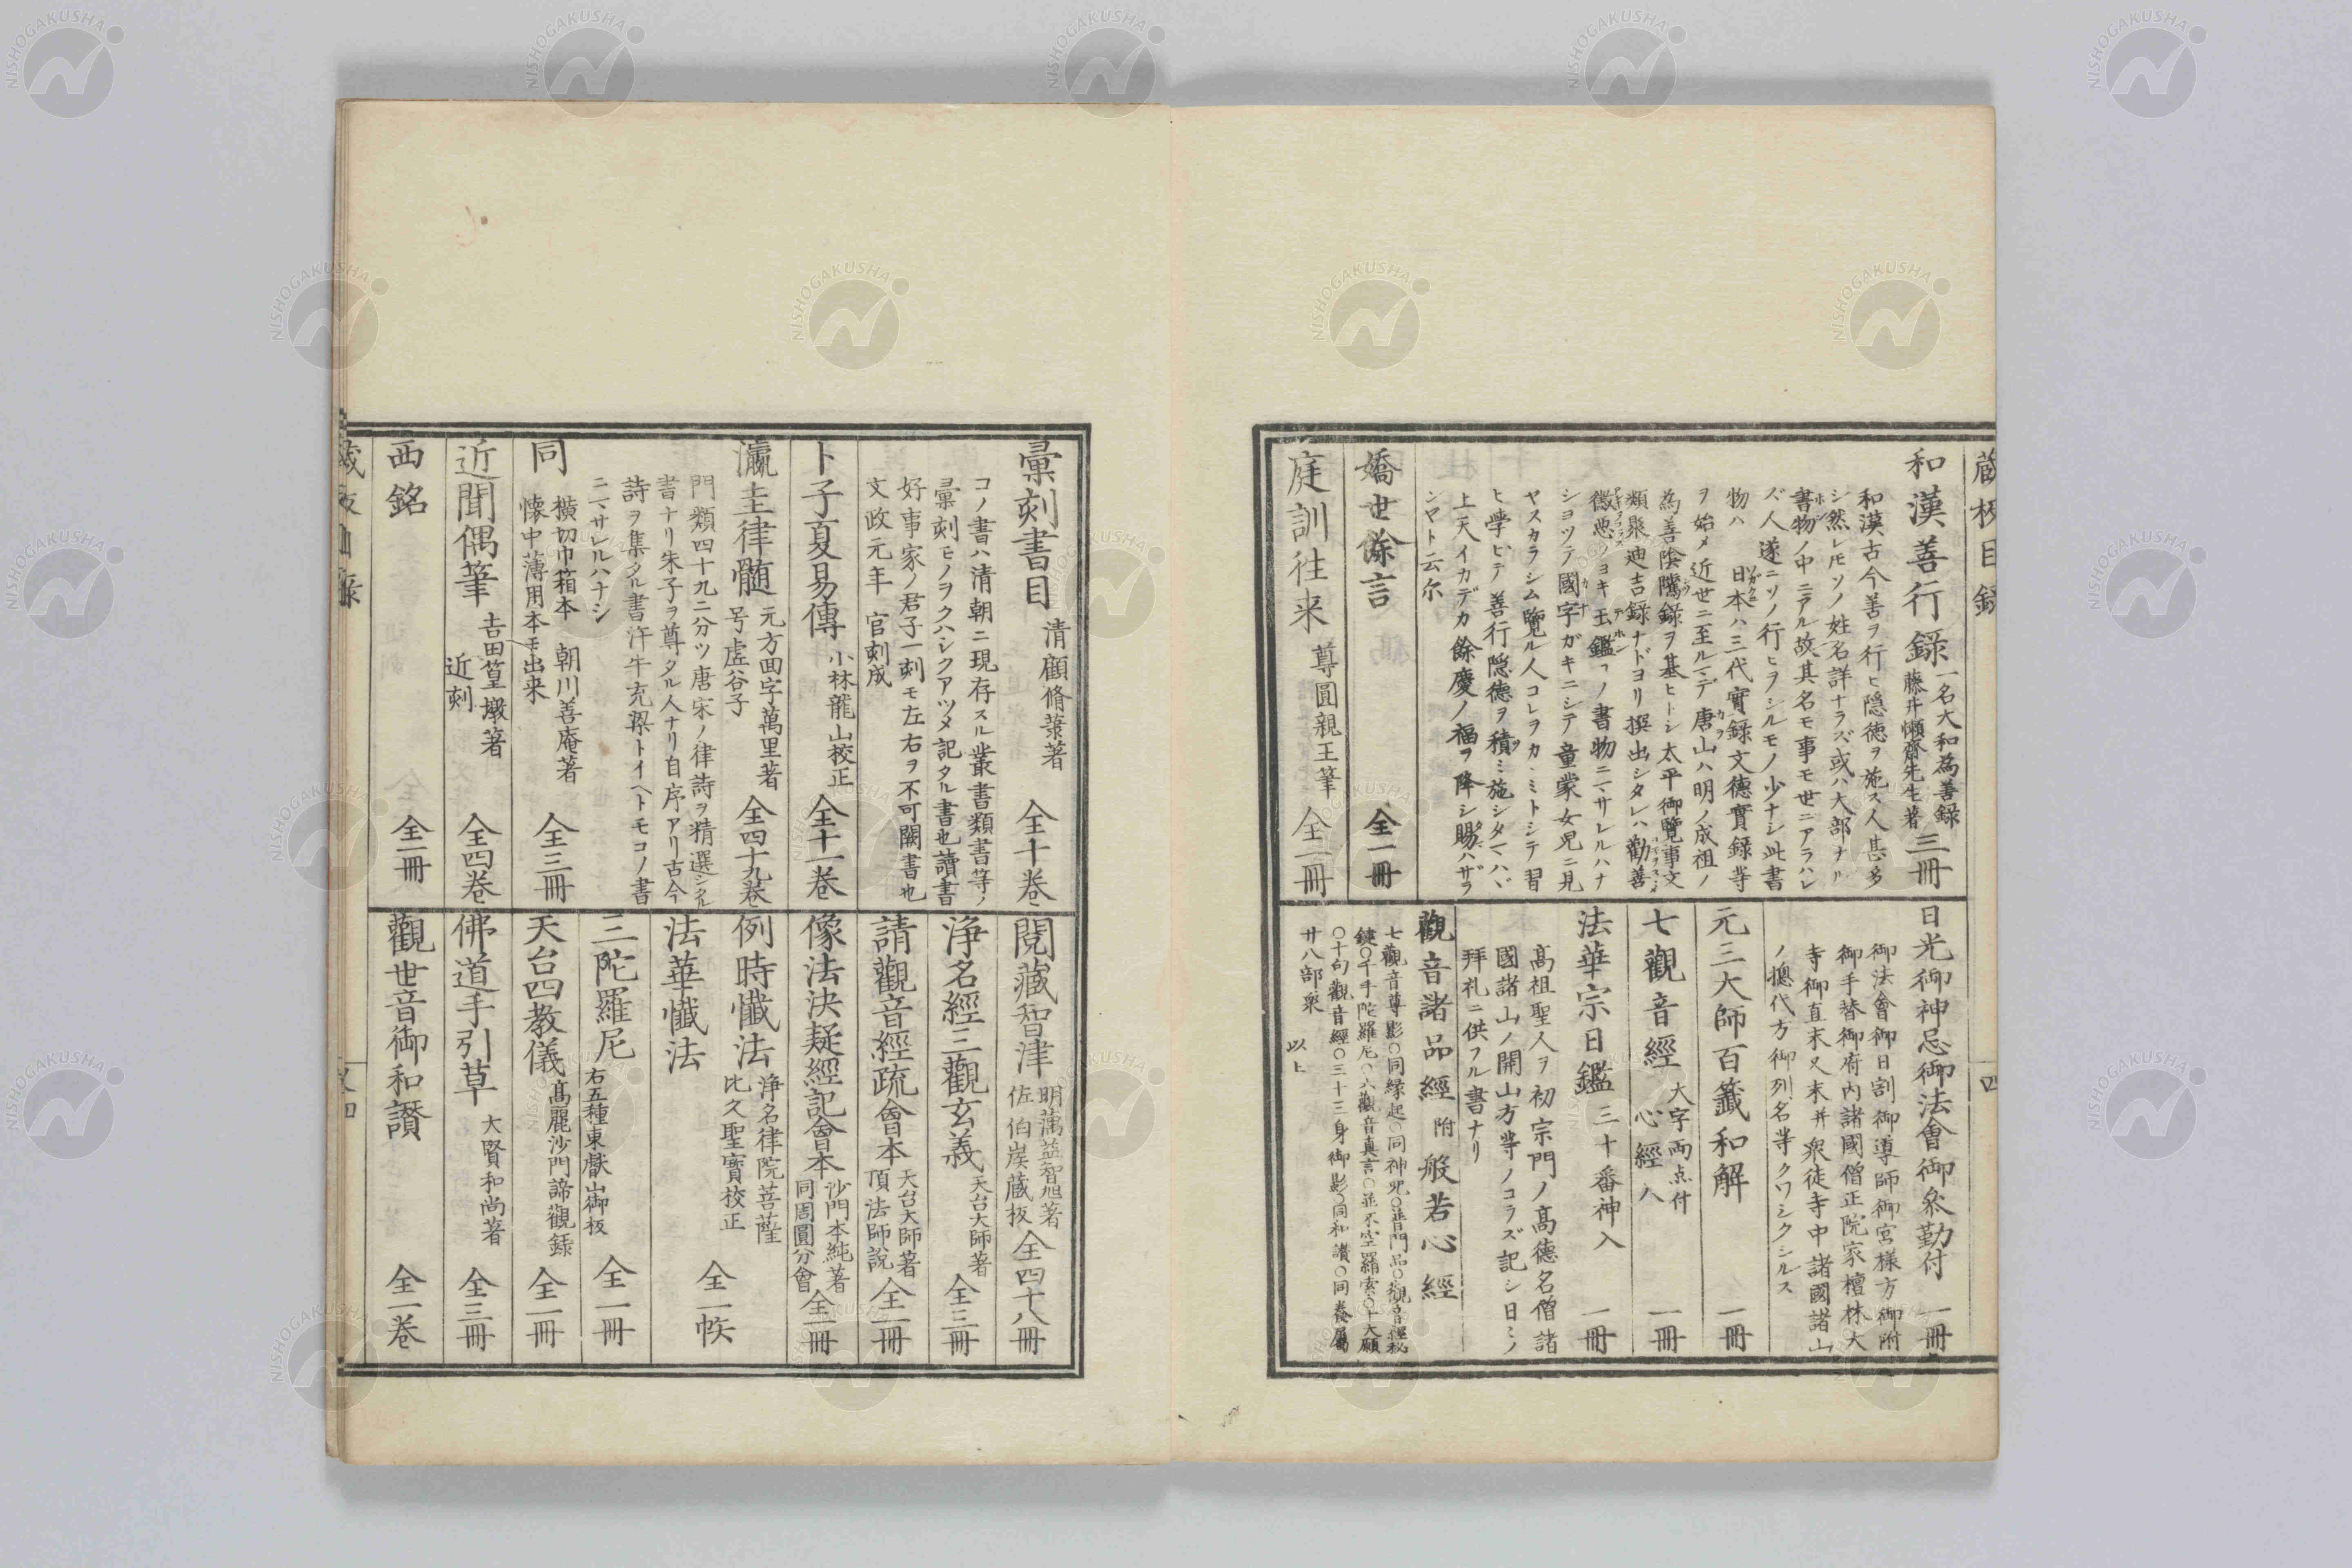 藏板目録
和漢善行録 一名大和為善録 藤井懶齋先生著 三冊
和漢古今善ヲ行ヒ隠德ヲ施ス人甚多
シ然レ𪜈ソノ姓名詳ナラズ或ハ大部ナル
書物ノ中ニアル故其名モ事モ世ニアラハレ
ズ人遂ニソノ行ヒヲシルモノ少ナシ此書
物ハ日本ハ三代實録文德實録等
ヲ始メ近世ニ至ルマデ唐山ハ明ノ成祖ノ
為善陰隲録ヲ基ヒトシ太平御覽事文
類聚迪吉録ナドヨリ撰出シタレハ勸善
懲悪ノヨキ玉鑑コノ書物ニマサレルハナ
シヨツテ國字ガキニシテ童蒙女児ニ見
ヤスカラシム覽ル人コレヲカヾミトシテ習
ヒ學ビテ善行隠德ヲ積ミ施シタマハヾ
上天イカデカ餘慶ノ福ヲ降シ賜ハザラ
ンヤト云尓
嬌世餘言 全一冊
庭訓往来 尊圓親王筆 全一冊
日光御神忌御法會御叅勤付 一冊
御法會御日割御導師御宮様方御附
御手替御府内諸國僧正院家檀林大
寺御直末又末并衆徒寺中諸國諸山
ノ摠代方御列名等クワシクシルス
元三大師百籤和解 一冊
七觀音經 大字両点付 心經入 一冊
法華宗日鑑 三十番神入 一冊
髙祖聖人ヲ初宗門ノ髙德名僧諸
國諸山ノ開山方等ノコラズ記シ日ミノ
拜礼ニ供フル書ナリ
觀音諸品經 附 般若心經
七觀音尊影〇同縁起〇同神呪〇並普門品〇觀音經秘
鍵〇千手陀羅尼〇六觀音真言〇並不空羂索〇十大願
〇十句觀音經〇三十三身御影〇同和讃〇同眷属
廿八部衆 以上
四
彙刻書目 清顧脩彙著 全十巻
コノ書ハ清朝ニ現存スル叢書類書等ノ
彙刻モノヲクハシクアツメ記タル書也讀書
好事家ノ君子一刻モ左右ヲ不可闕書也
文政元年 官刻成
卜子夏易傳 小林龍山挍正 全十一巻
瀛奎律髄 元方囬字萬里著 号虚谷子 全四十九巻
門類四十九ニ分ツ唐宋ノ律詩ヲ精選シタル
書ナリ朱子ヲ尊タル人ナリ自序アリ古今
詩ヲ集タル書汗牛充梁トイヘトモコノ書
ニマサレルハナシ
同 横切巾箱本 朝川善庵著 懐中薄用本モ出来 全三冊
近聞偶筆 吉田篁墩著 近刻 全四巻
西銘 全一冊
閱藏智津 明蕅益智旭著 佐伯矦蔵板 全四十八冊
浄名經三觀玄義 天台大師著 全三冊
請觀音經疏會本 天台大師著 頂法師說 全一冊
像法決疑經記會本 沙門本純著 同周圓分會 全一冊
例時懺法 浄名律院菩薩 比久聖寳校正
法華懺法 全一帙
三陀羅尼 右五種東叡山御板 全一冊
天台四教儀 髙麗沙門諦觀録 全一冊
佛道手引草 大賢和尚著 全三冊
觀世音御和讃 全一巻